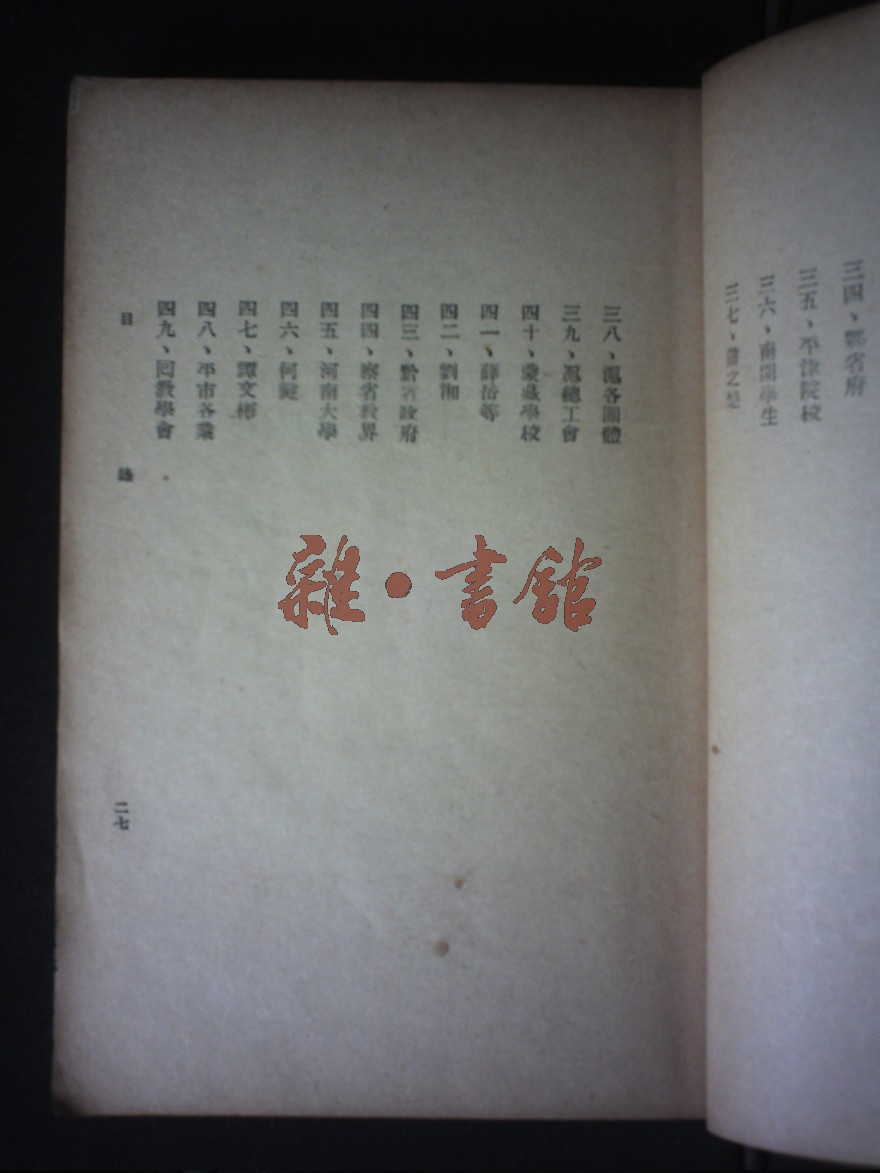 三四、鄂省府
三五、平津院校
三六、南開學生
三七、蕭之楚
三八、滬各團體
三九、滬總工會
四十、蒙藏學校
四一、薛岳等
四二、劉湘
四三、黔省政府
四四、察省教界
四五、河南大學
四六、何鍵
四七、譚文彬
四八、平市各業
四九、回教學會
目 錄
二七
雜·書館